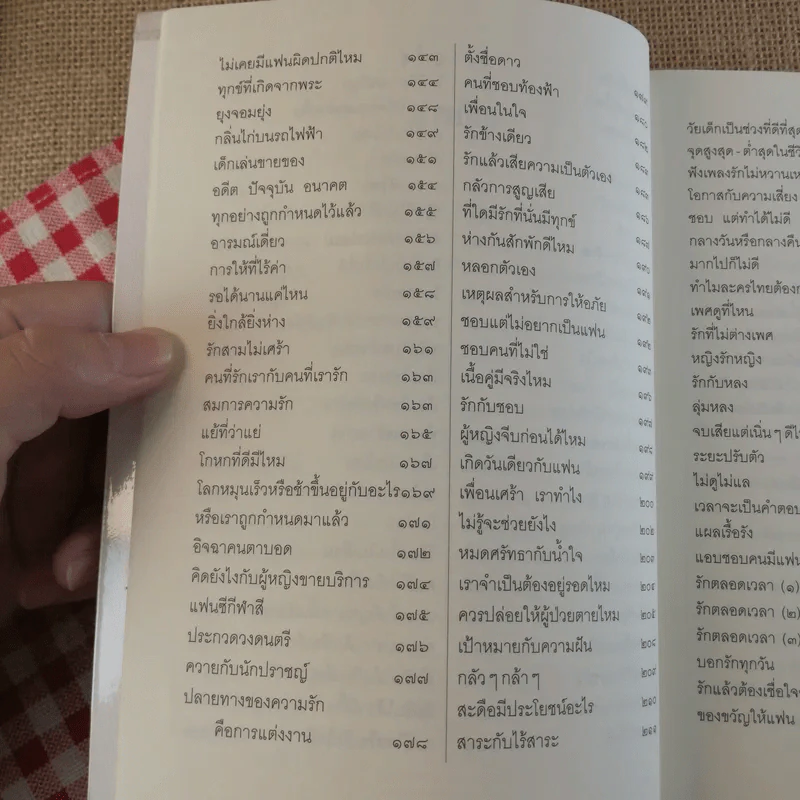 ไม่เคยมีแฟนผิดปกติไหม ๑๔๓
ทุกข์ที่เกิดจากพระ ๑๔๔
ยุงจอมยุ่ง ๑๔๘
กลิ่นไก่บนรถไฟฟ้า ๑๔๙
เด็กเล่นขายของ ๑๕๑
อดีต ปัจจุบัน อนาคต ๑๕๔
ทุกอย่างถูกกำหนดไว้แล้ว ๑๕๕
อารมณ์เดี่ยว ๑๕๖
การให้ที่ไร้ค่า ๑๕๗
รอได้นานแค่ไหน ๑๕๘
ยิ่งใกล้ยิ่งห่าง ๑๕๙
รักสามไม่เศร้า ๑๖๑
คนที่รักเรากับคนที่เรารัก ๑๖๓
สมการความรัก ๑๖๓
แย้ที่ว่าแย่ ๑๖๕
โกหกที่ดีมีไหม ๑๖๗
โลกหมุนเร็วหรือช้าขึ้นอยู่กับอะไร๑๖๙
หรือเราถูกกำหนดมาแล้ว ๑๗๑
อิจฉาคนตาบอด ๑๗๒
คิดยังไงกับผู้หญิงขายบริการ ๑๗๔
แฟนซีกีฬาสี ๑๗๕
ประกวดวงดนตรี ๑๗๖
ควายกับนักปราชญ์ ๑๗๗
ปลายทางของความรัก
คือการแต่งงาน ๑๗๘
ตั้งชื่อดาว
คนที่ชอบท้องฟ้า
เพื่อนในใจ
รักข้างเดียว
รักแล้วเสียความเป็นตัวเอง
กลัวการสูญเสีย
ที่ใดมีรักที่นั่นมีทุกข์
ห่างกันสักพักดีไหม
หลอกตัวเอง
เหตุผลสำหรับการให้อภัย
ชอบแต่ไม่อยากเป็นแฟน
ชอบคนที่ไม่ใช่
เนื้อคู่มีจริงไหม
รักกับชอบ
ผู้หญิงจีบก่อนได้ไหม
เกิดวันเดียวกับแฟน
เพื่อนเศร้า เราทำไง ๒๐๐
ไม่รู้จะช่วยยังไง ๒๐๒
หมดศรัทธากับน้ำใจ ๒๐๓
เราจำเป็นต้องอยู่รอดไหม ๒๐๔
ควรปล่อยให้ผู้ป่วยตายไหม ๒๐๕
เป้าหมายกับความฝัน ๒๐๘
กลัว ๆ กล้า ๆ ๒๐๙
สะดือมีประโยชน์อะไร ๒๑๐
สาระกับไร้สาระ ๒๑๑
วัยเด็กเป็นช่วงที่ดีที่สุด
จุดสูงสุด - ต่ำสุดในชีวิ
ฟังเพลงรักไม่หวานเห
โอกาสกับความเสี่ยง
ชอบ แต่ทำได้ไม่ดี
กลางวันหรือกลางคืน
มากไปก็ไม่ดี
ทำไมละครไทยต้อง
เพศดูที่ไหน
รักที่ไม่ต่างเพศ
หญิงรักหญิง
รักกับหลง
ลุ่มหลง
จบเสียแต่เนิ่น ๆ ดี
ระยะปรับตัว
ไม่ดูไม่แล
เวลาจะเป็นคำตอบ
แผลเรื้อรัง
แอบชอบคนมีแฟน
รักตลอดเวลา (๑)
รักตลอดเวลา (๒)
รักตลอดเวลา (๓)
บอกรักทุกวัน
รักแล้วต้องเชื่อใจ
ของขวัญให้แฟน